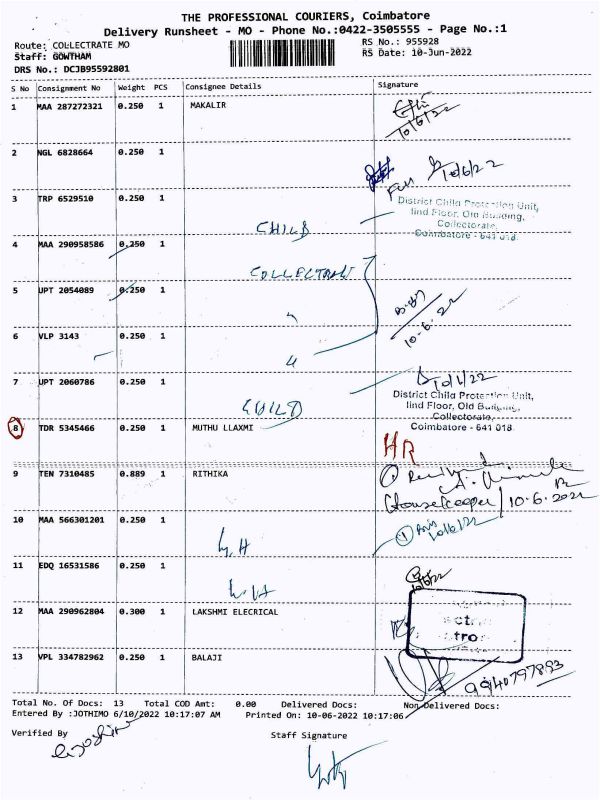 THE PROFESSIONAL COURIERS, Coimbatore
Delivery Runsheet - MO - Phone No.:0422-3505555 - Page No.:1
Route: COLLECTRATE MO RS No.: 955928
Staff: GOWTHAM RS Date: 10-Jun-2022
DRS No.: DCJB95592801
S No Consignment No Weight PCS Consignee Details Signature
1 MAA 287272321 0.250 1 MAKALIR
10/6/22
2 NGL 6828664 0.250 1
10/6/22
3 TRP 6529510 0.250 1
District Child Protection Unit,
IInd Floor, Old Building,
Collectorate,
Coimbatore - 641 018.
CHILD
4 MAA 290958586 0.250 1
COLLECTRATE
5 UPT 2054089 0.250 1
10-6-22
6 VLP 3143 0.250 1
7 UPT 2060786 0.250 1
District Child Protection Unit,
IInd Floor, Old Building,
Collectorate,
Coimbatore - 641 018.
CHILD
8 TDR 5345466 0.250 1 MUTHU LLAXMI
HR
9 TEN 7310485 0.889 1 RITHIKA
Housekeeper 10-6-2022
10 MAA 566301201 0.250 1
10/6/22
11 EDQ 16531586 0.250 1
12 MAA 290962804 0.300 1 LAKSHMI ELECRICAL
13 VPL 334782962 0.250 1 BALAJI
9940797893
Total No. Of Docs: 13 Total COD Amt: 0.00 Delivered Docs: Non Delivered Docs:
Entered By :JOTHIMO 6/10/2022 10:17:07 AM Printed On: 10-06-2022 10:17:06
Verified By Staff Signature